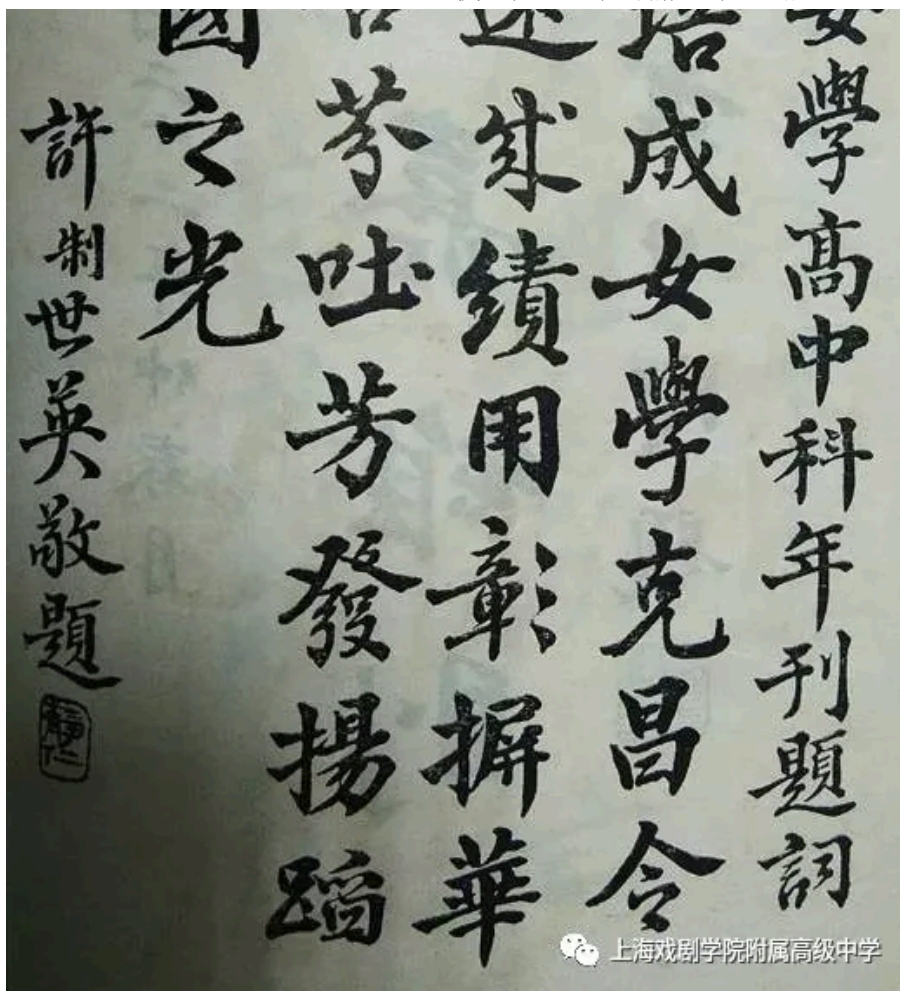 女學高中科年刊題詞
培成女學克昌令
述成績用彰摒華
芬吐芳發揚蹈
國之光
許制世英敬題
上海戏剧学院附属高级中学